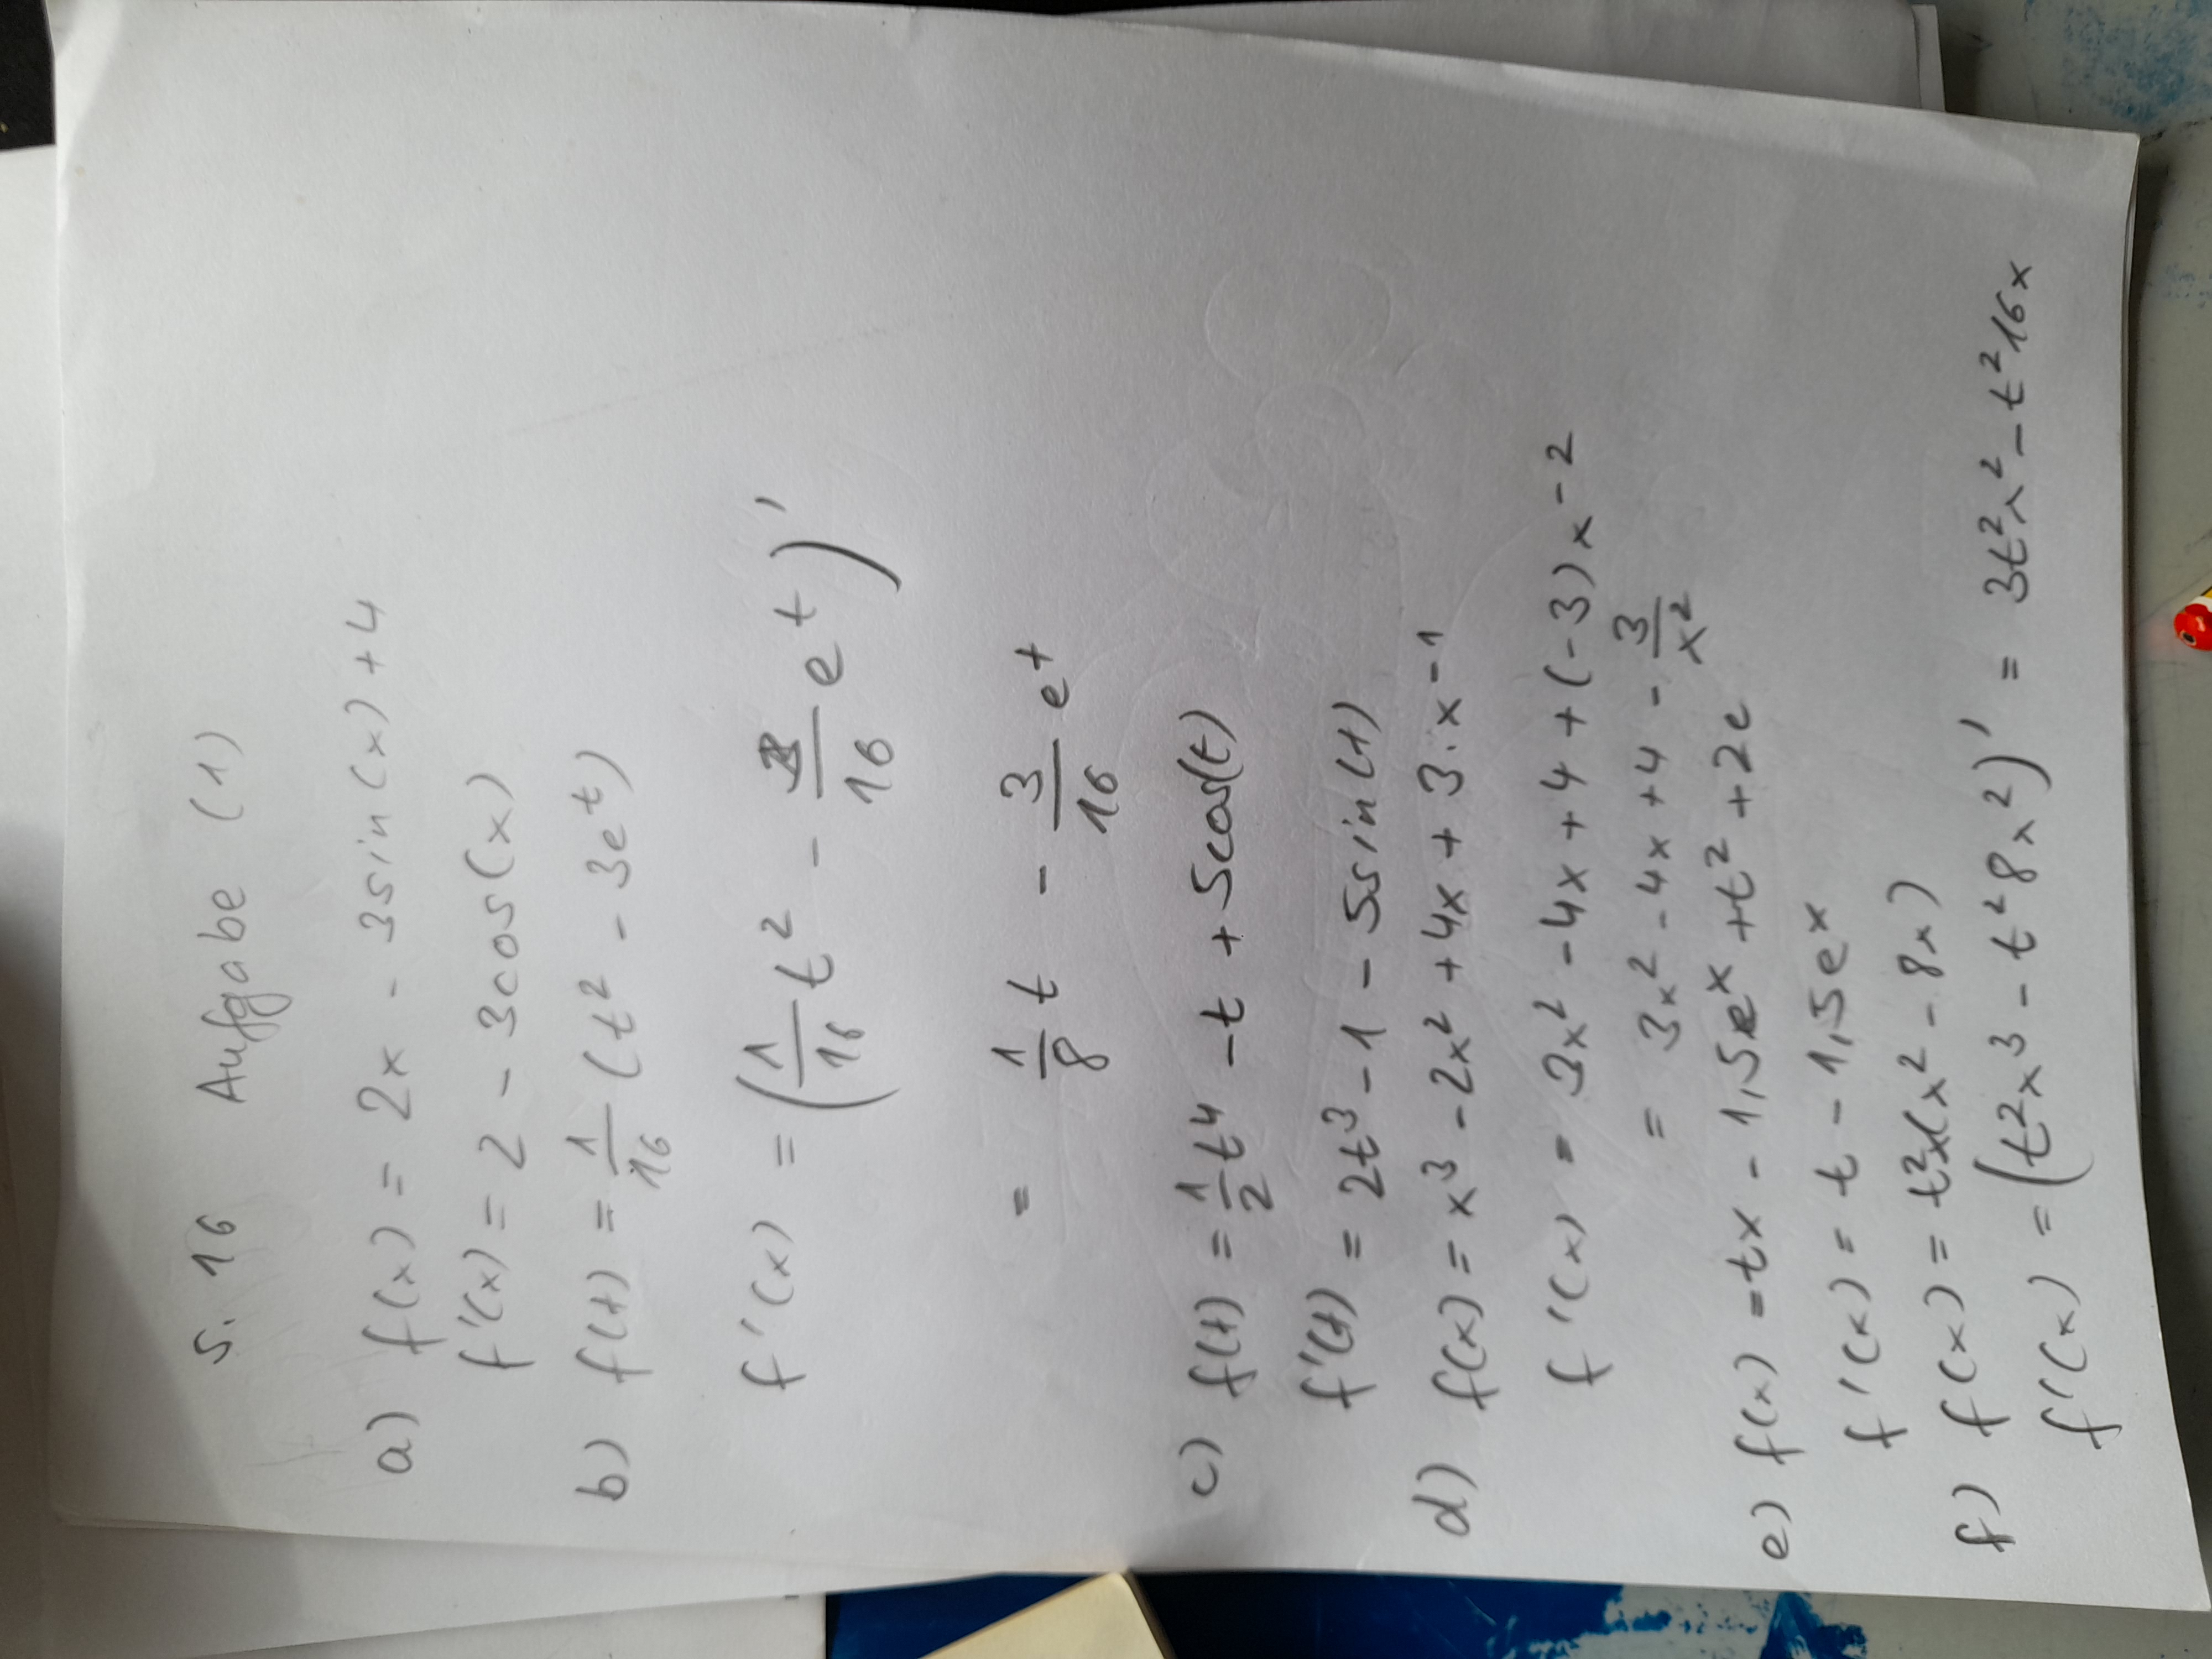 S. 16 Aufgabe (1)
a) f(x) = 2x - 3sin(x) + 4
f'(x) = 2 - 3cos(x)
b) f(t) = 1/16 (t² - 3e^t)
f'(x) = (1/16 t² - 3/16 e^t)'
= 1/8 t - 3/16 e^t
c) f(t) = 1/2 t⁴ - t + 5cos(t)
f'(t) = 2t³ - 1 - 5sin(t)
d) f(x) = x³ - 2x² + 4x + 3·x⁻¹
f'(x) = 3x² - 4x + 4 + (-3)x⁻²
= 3x² - 4x + 4 - 3/x²
e) f(x) = tx - 1,5e^x + t² + 2e
f'(x) = t - 1,5e^x
f) f(x) = t²x(x² - 8x)
f'(x) = (t²x³ - t²8x²)' = 3t²x² - t²16x